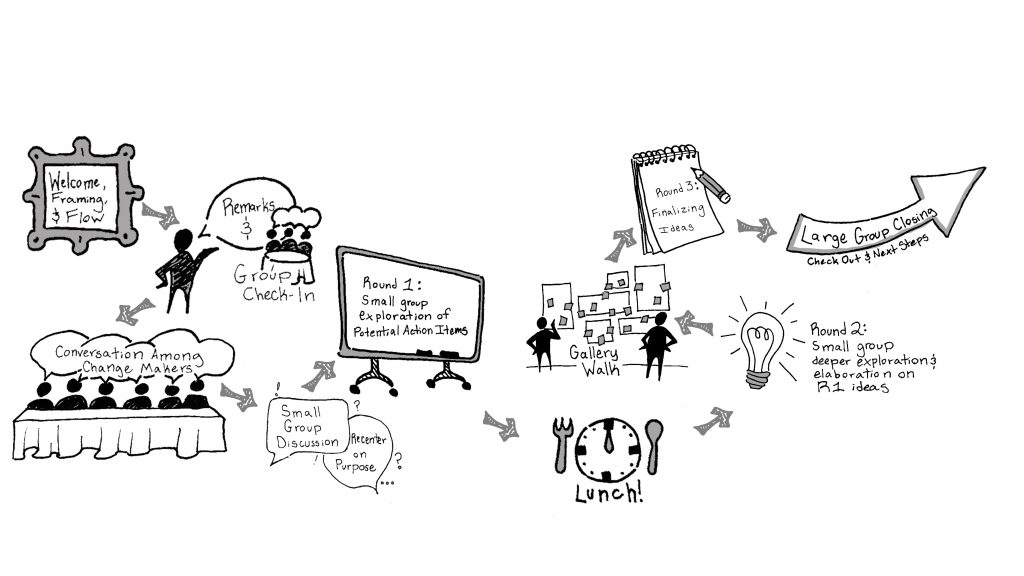 Welcome,
Framing,
& Flow
Remarks
&
Group
Check-In
Conversation Among
Change Makers
Small
Group
Discussion
Recenter
on
Purpose
Round 1:
Small group
exploration of
Potential Action Items
Lunch!
Round 2:
Small group
deeper exploration &
elaboration on
R1 ideas
Gallery
Walk
Round 3:
Finalizing
Ideas
Large Group Closing
Check Out & Next Steps